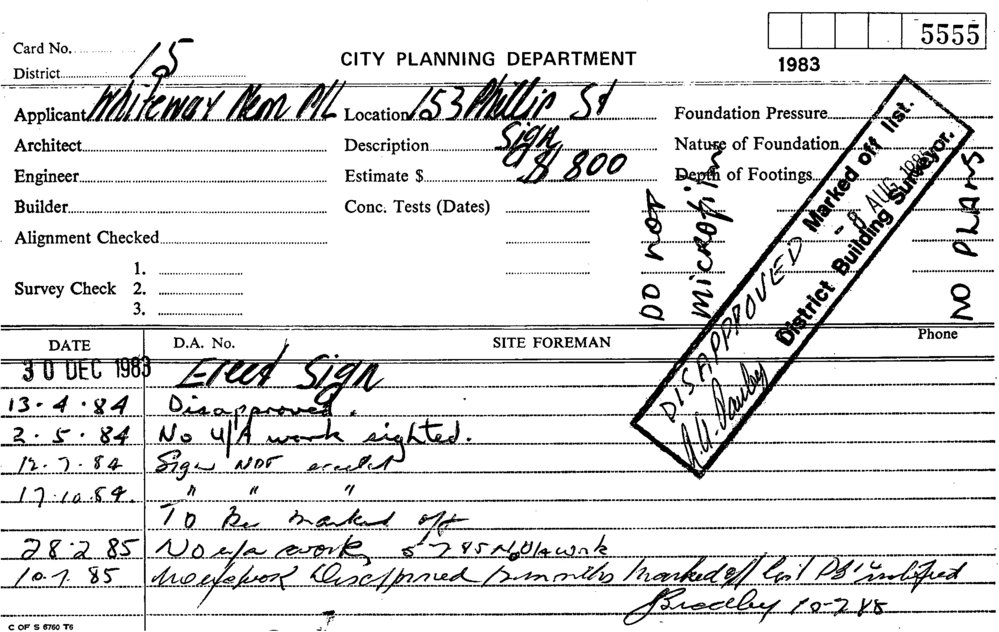 Card No. 15
District
CITY PLANNING DEPARTMENT
5555
1983
Applicant Whiteway Nem P/L Location 153 Phillip St Foundation Pressure
Architect Description Sign Nature of Foundation
Engineer Estimate $ $ 800 Depth of Footings
Builder Conc. Tests (Dates)
Alignment Checked
1.
Survey Check 2.
3.
DO NOT
MICROFILM
NO PLANS
DISAPPROVED Marked off list.
- 8 AUG
District Building Surveyor.
DATE D.A. No. SITE FOREMAN Phone
30 DEC 1983 Erect Sign
13.4.84 Disapproved.
2.5.84 No U/A work sighted.
12.7.84 Sign NOT erected
17.10.84. " " "
To be marked off
28.2.85 No u/a work, 5 7 85 No U/A work
10.7.85 Disapproved 12 months Marked off list
Bradley 10-7-85
C OF S 6760 T6